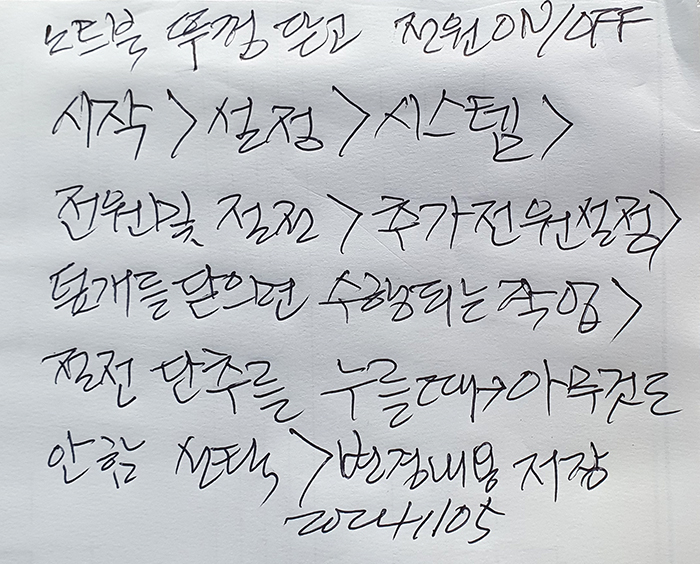 노트북 뚜껑 닫고 전원ON/OFF
시작 > 설정 > 시스템 >
전원 및 절전 > 추가전원설정>
덮개를 닫으면 수행되는 작업>
절전 단추를 누를때→아무것도
안함 선택 >변경내용 저장
20241105